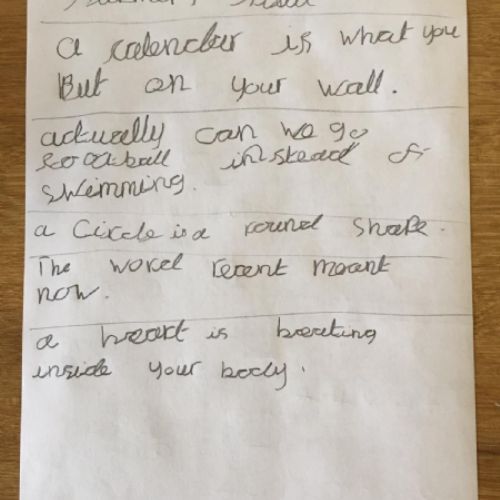 a calender is what you
But on your wall.
actually can we go
football instead of
swimming.
a Circle is a round shape.
The word recent meant
now.
a heart is beating
inside your body.